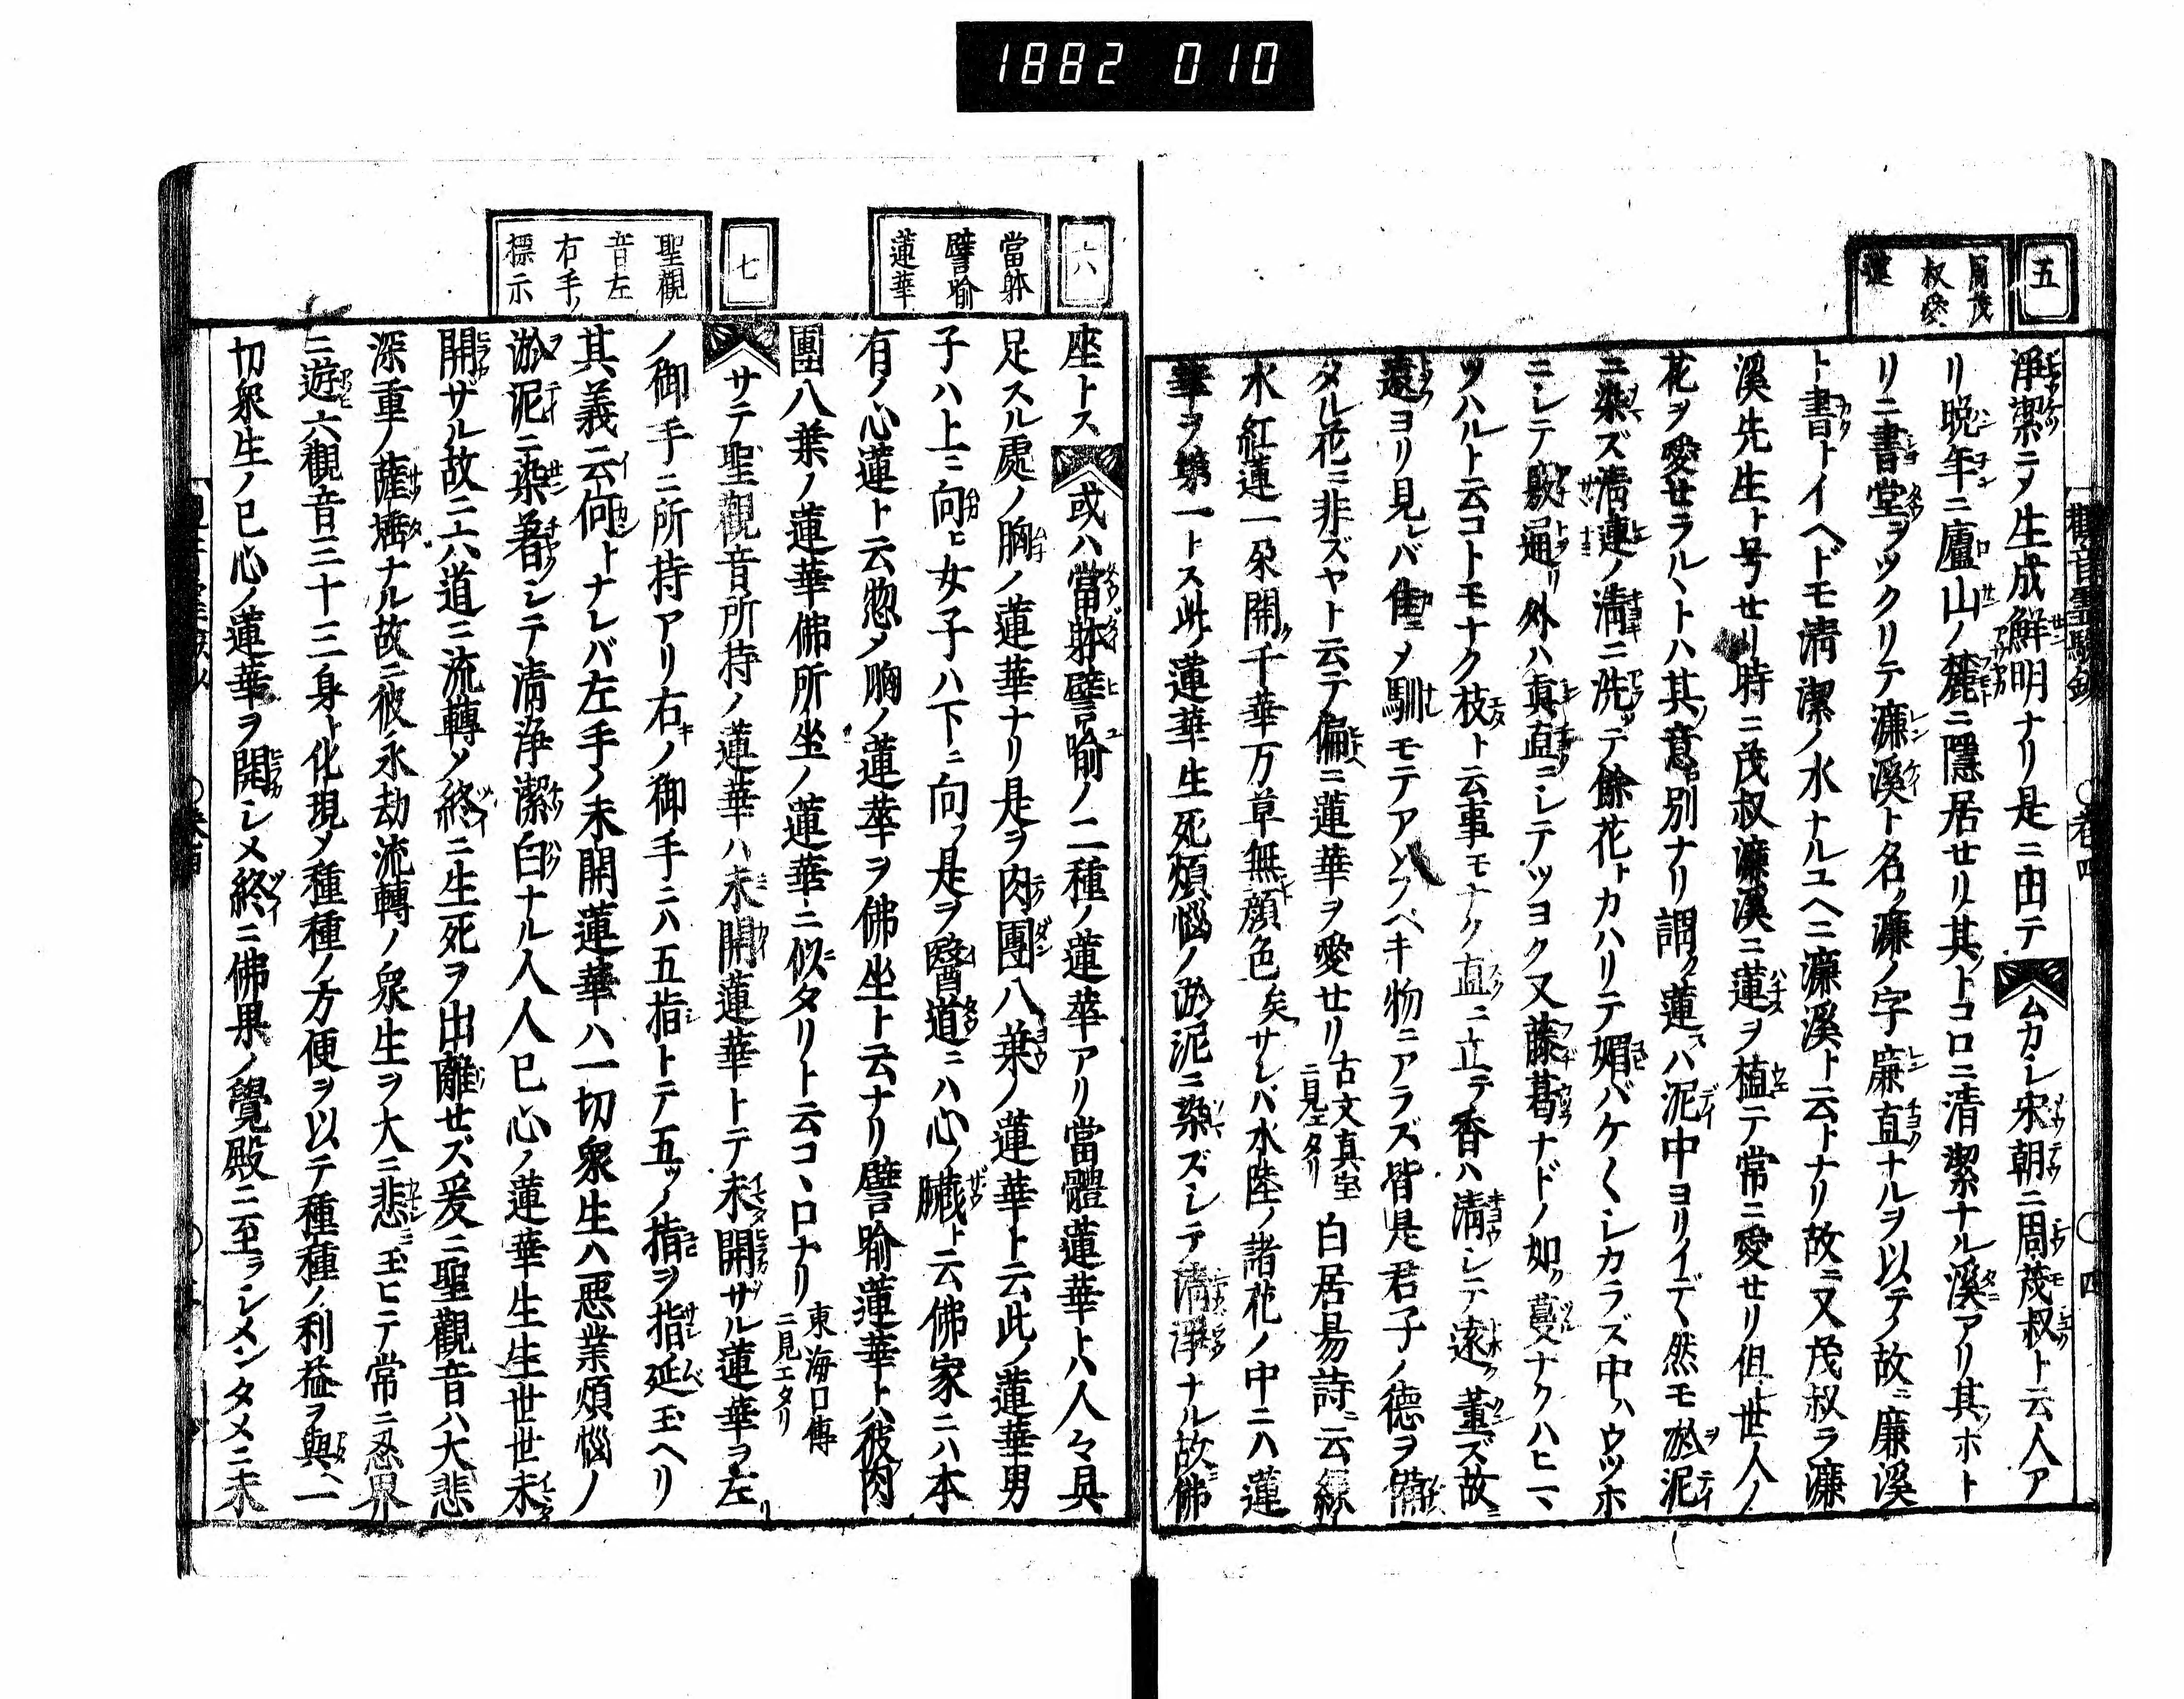 1882 010
五
周茂
叔愛
蓮
淨潔ニヲ生成鮮明ナリ是ニ由テムカシ宋朝ニ周茂叔ト云人ア
リ晩年ニ廬山ノ麓ニ隱居セリ其トコロニ清潔ナル溪アリ其ホト
リニ書堂ヲツクリテ濂溪ト名ク濂ノ字廉直ナルヲ以テノ故ニ廉溪
ト書トイヘドモ清潔ノ水ナルユヘニ濂溪ト云トナリ故ニ又茂叔ヲ濂
溪先生ト号セリ時ニ茂叔濂溪ニ蓮ヲ植テ常ニ愛セリ但世人ノ
花ヲ愛セラルヽトハ其意別ナリ謂ク蓮ハ泥中ヨリイデヽ然モ淤泥
ニ染ズ清漣ノ清ニ洗テ餘花トカハリテ媚バケ〱シカラズ中ハウツホ
ニシテ竅通リ外ハ真直ニシテツヨク又藤葛ナドノ如ク蔓ナクハヒ一ヽ
ツハルト云コトモナク枝ト云事モナク直ニ立テ香ハ清シテ遠ク薫ズ故ニ
遠ヨリ見レバ隹ニメ馴モテアソブベキ物ニアラズ皆是君子ノ德ヲ備
タル花ニ非ズヤト云テ偏ニ蓮華ヲ愛セリ古文真宝ニ見エタリ白居易詩ニ云綠
水紅蓮一朶開ク千華万草無顔色矣サレバ水陸ノ諸花ノ中ニハ蓮
華ヲ第一トス此ノ蓮華生死煩惱ノ淤泥ニ染ズシテ清淨ナル故ニ佛
觀音靈驗鈔 ○卷四 ○四
六
當躰
譬喻
蓮華
七
聖觀
音左
右手ノ
標示
座トス或ハ當躰譬喻ノ二種ノ蓮華アリ當體蓮華トハ人々具
足スル處ノ胸ノ蓮華ナリ是ヲ肉團八葉ノ蓮華ト云此ノ蓮華男
子ハ上ニ向ヒ女子ハ下ニ向フ是ヲ醫道ニハ心ノ臟ト云佛家ニハ本
有ノ心蓮ト云惣メ胸ノ蓮華ヲ佛坐ト云ナリ譬喻蓮華トハ彼肉
團八葉ノ蓮華佛所坐ノ蓮華ニ似タリト云コヽロナリ東海口傳ニ見エタリ
サテ聖觀音所持ノ蓮華ハ未開蓮華トテ未開ザル蓮華ヲ左リ
ノ御手ニ所持アリ右ノ御手ニハ五指トテ五ツノ指ヲ指延玉ヘリ
其義云何トナレバ左手ノ未開蓮華ハ一切衆生ハ惡業煩惱ノ
淤泥ニ染著シテ清淨潔白ナル人人已心ノ蓮華生生世世未
開ザル故ニ六道ニ流轉ノ終ニ生死ヲ出離セズ爰ニ聖觀音ハ大悲
深重ノ薩埵ナル故ニ彼ノ永劫流轉ノ衆生ヲ大ニ悲ミ玉ヒテ常ニ忍界
ニ遊六觀音三十三身ト化現メ種種ノ方便ヲ以テ種種ノ利益ヲ與一
切衆生ノ已心ノ蓮華ヲ開シメ終ニ佛果ノ覺殿ニ至ラシメンタメニ未